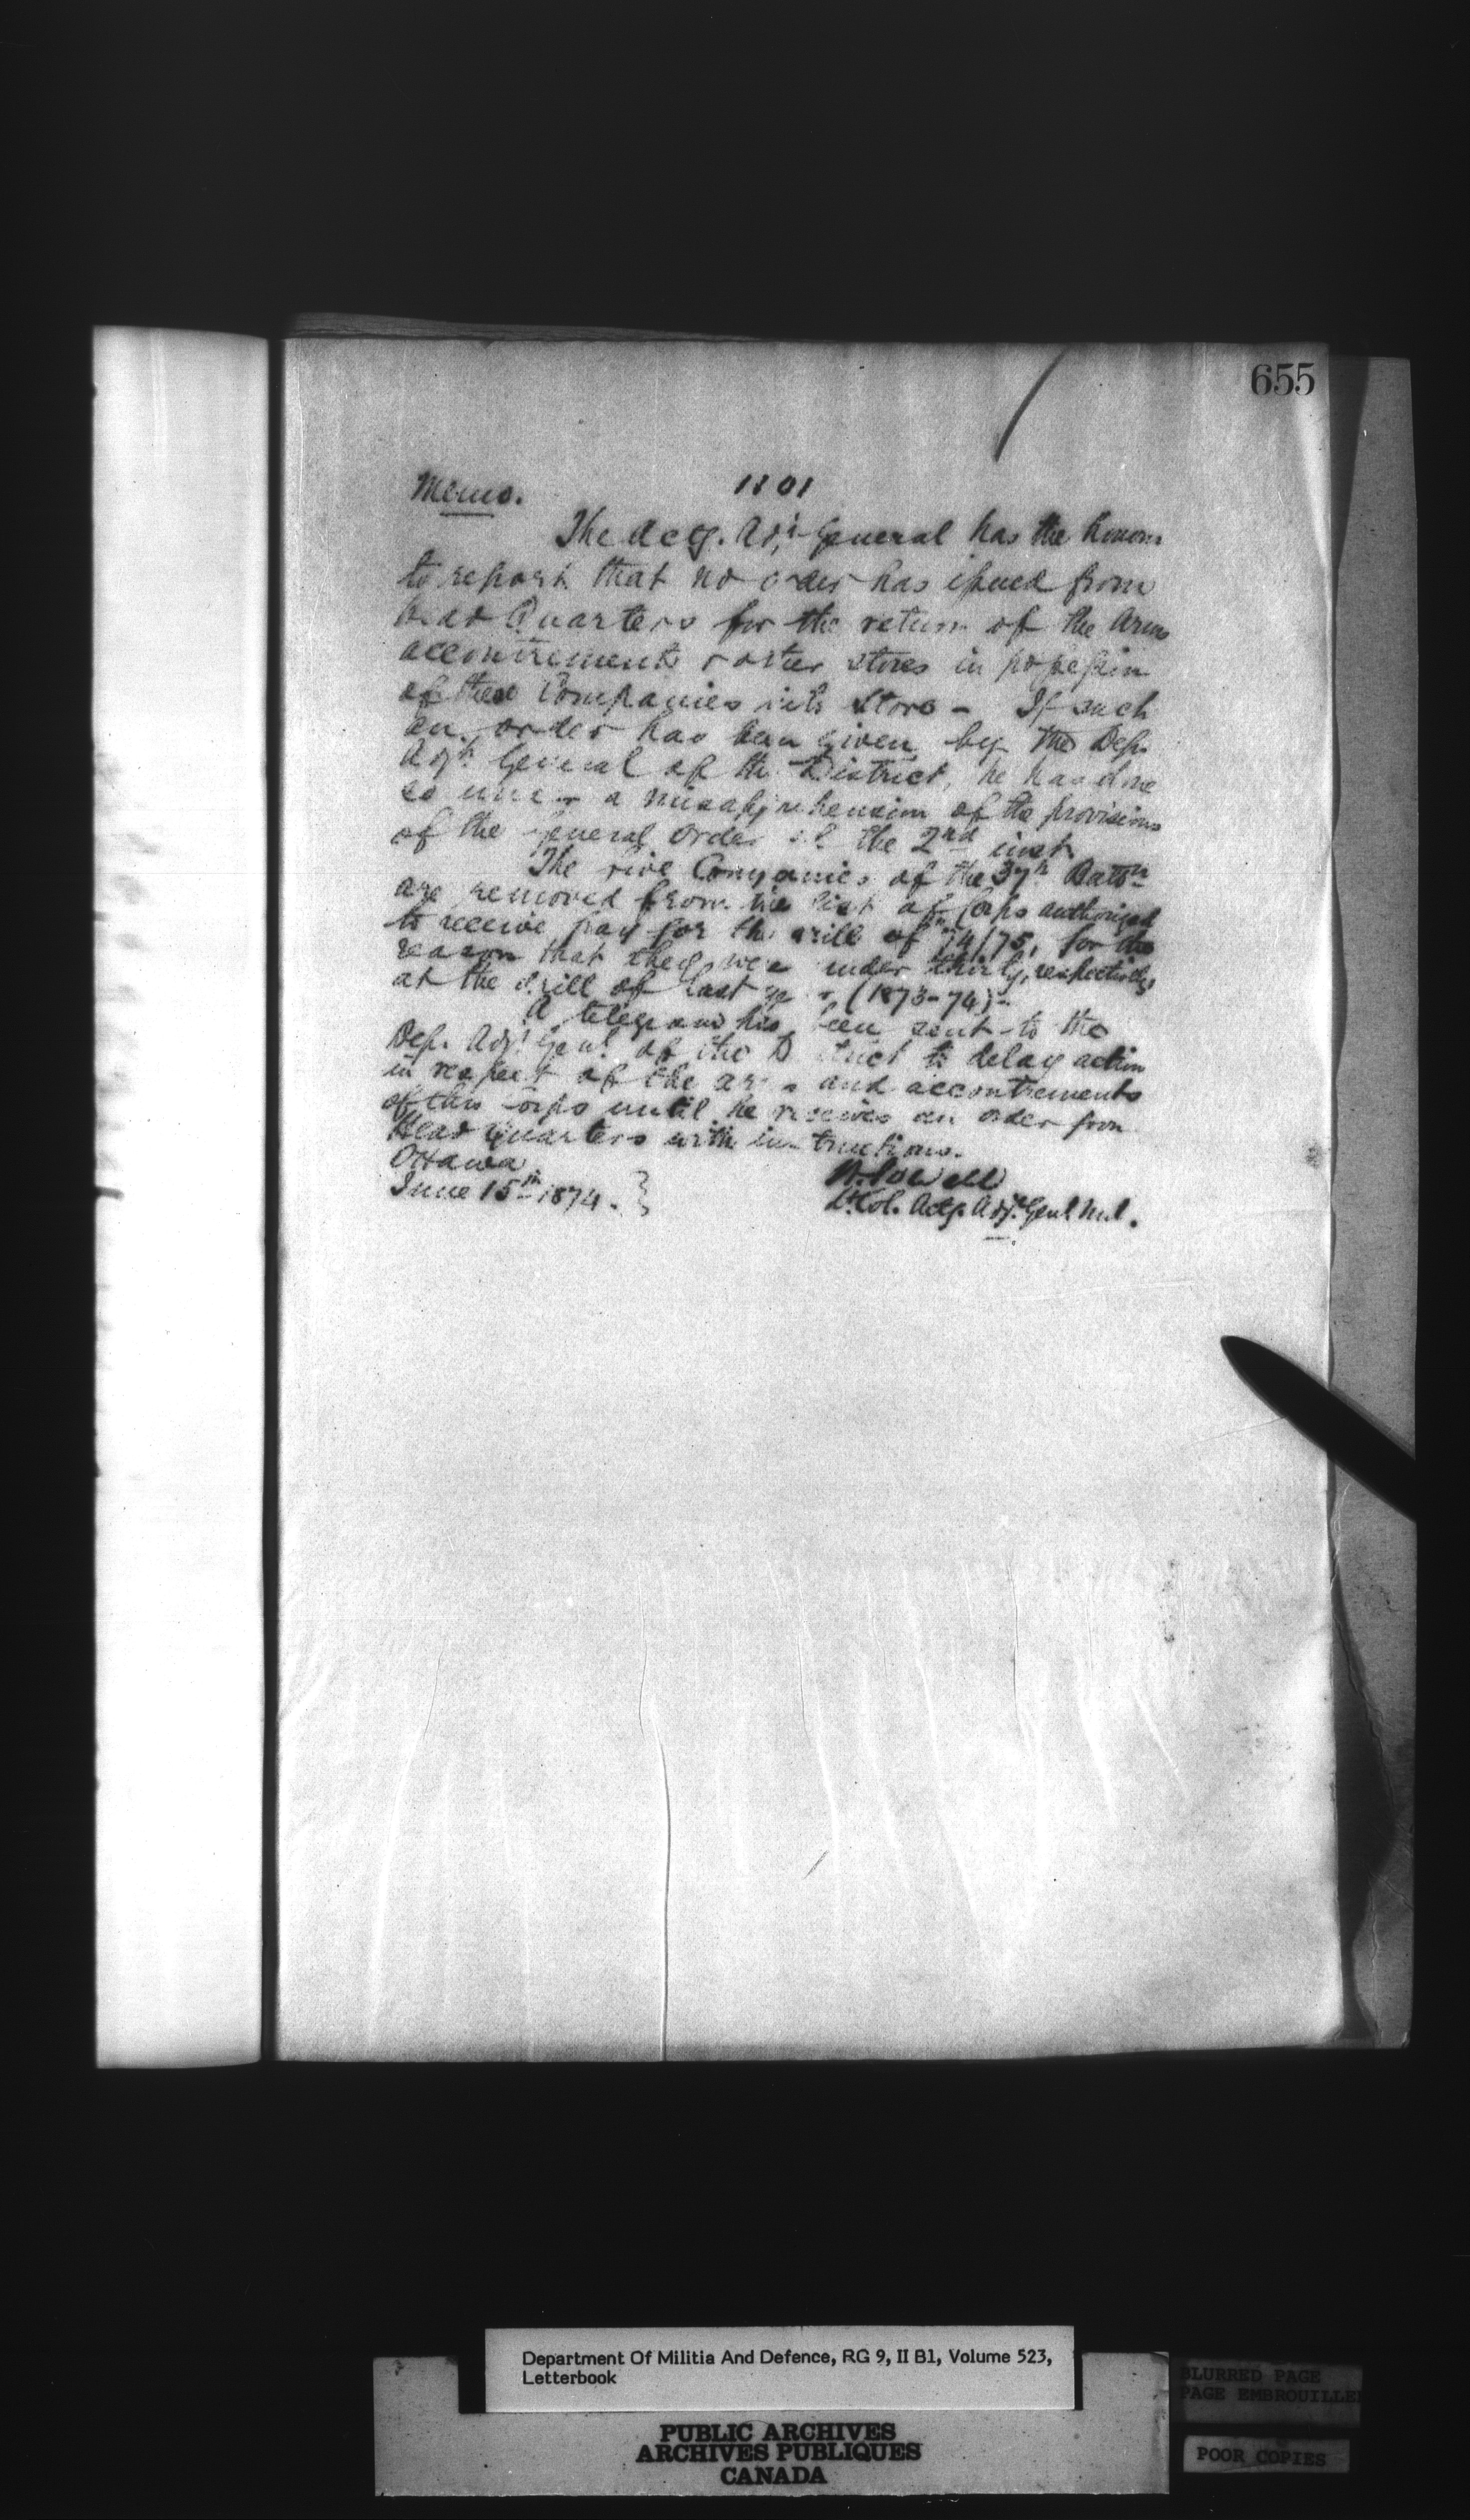 655
Memo. 1801
The Actg. Adjt General has the honour
to report that no order has issued from
Head Quarters for the return of the Arms
accoutrements & other stores in possession
of these Companies into Store - If such
an order has been given by the Dep.
Adjt. General of the District, he has done
so under a misapprehension of the provisions
of the General Order of the 2nd inst.
The five Companies of the 37th Battn
are removed from the list of Corps authorized
to receive pay for the drill of 74/75, for the
reason that they were under thirty, respectively,
at the drill of last year, (1873-74)-
A telegram has been sent to the
Dep. Adjt Genl. of the District to delay action
in respect of the arms and accoutrements
of this Corps until he receives an order from
Head Quarters with instructions.
Ottawa
June 15th 1874. }
W. Powell
Lt. Col. Actg. Adjt. Genl. Mil.
Department Of Militia And Defence, RG 9, II B1, Volume 523,
Letterbook
PUBLIC ARCHIVES
ARCHIVES PUBLIQUES
CANADA
BLURRED PAGE
PAGE EMBROUILLE
POOR COPIES